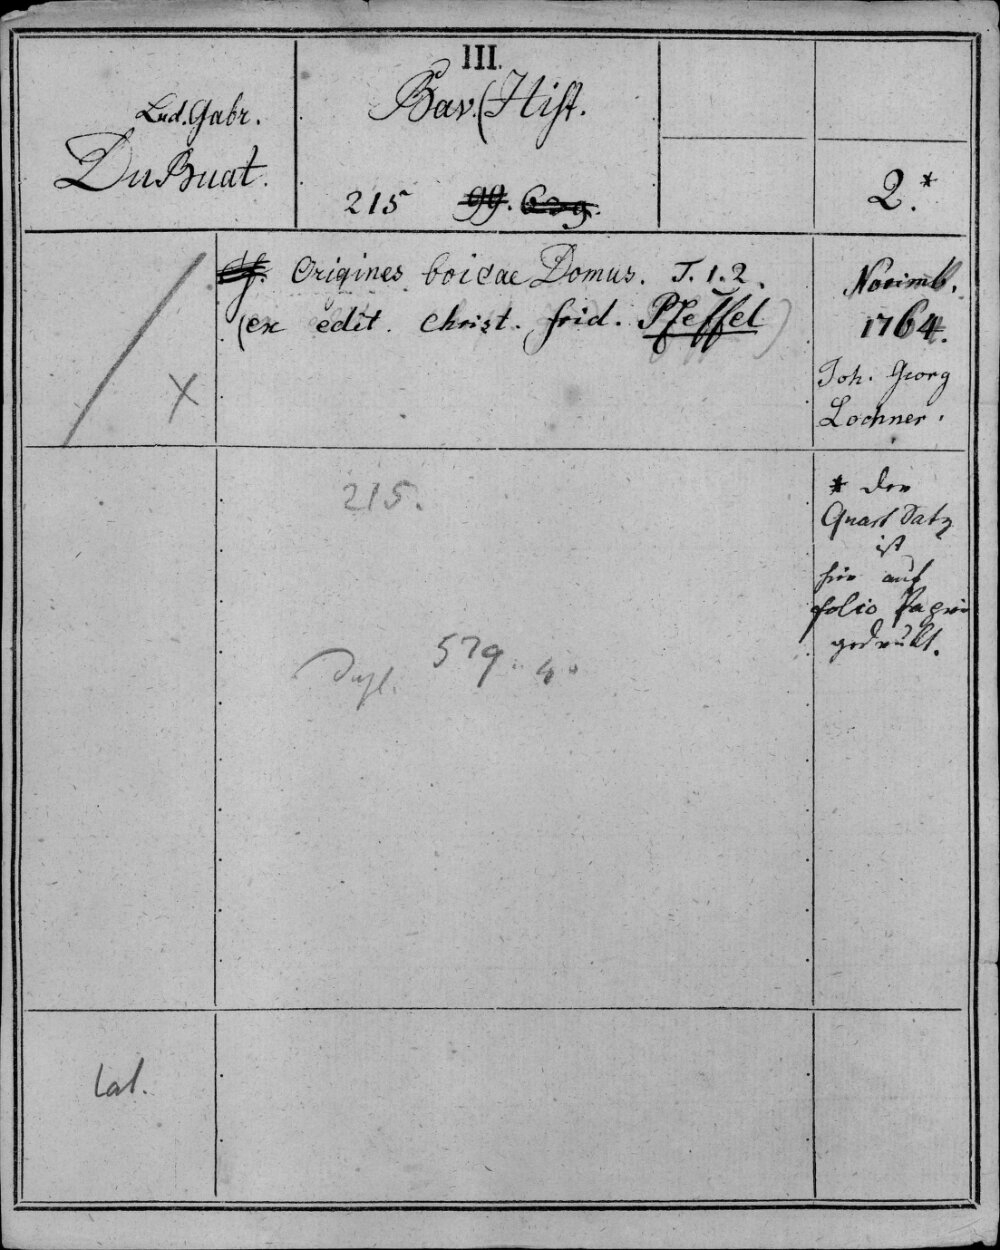 III.
Bav.(Hist.
Lud. Gabr.
DuBuat.
215 99. 639.
2.*
Origines boicae Domus. T. 1. 2.
(ex edit. Christ. frid. Pfeffel)
Norimb.
1764.
Joh. Georg
Lochner.
X
215.
* Der
Quart Satz
ist
hier auf
folio Papier
gedrukt.
Dupl. 579. 4°
lat.